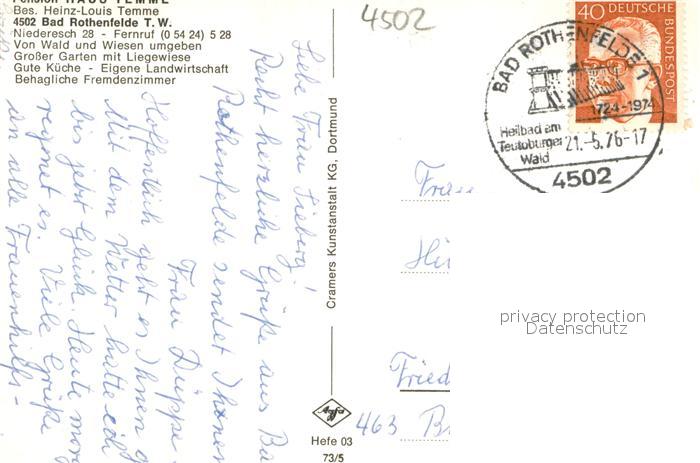 Pension HAUS TEMME
Bes. Heinz-Louis Temme
4502 Bad Rothenfelde T. W.
Niederesch 28 - Fernruf (0 54 24) 5 28
Von Wald und Wiesen umgeben
Großer Garten mit Liegewiese
Gute Küche - Eigene Landwirtschaft
Behagliche Fremdenzimmer
Liebe Frau Sieberg!
Recht herzliche Grüße aus Ba
Rothenfelde sendet Ihnen
Frau Düppe.
Hoffentlich geht es Ihnen g
Mit dem Wetter hatte ich
bis jetzt Glück. Heute mor
regnet es. Viele Grüße
an alle Frauenhilfs-
Cramers Kunstanstalt KG, Dortmund
Agfa
Hefe 03
73/5
4502
40 DEUTSCHE BUNDESPOST
BAD ROTHENFELDE 1
724-1974
Heilbad am
Teutoburger
Wald
21.-5.76-17
4502
Frau
Hü
Fried
463 B
privacy protection
Datenschutz